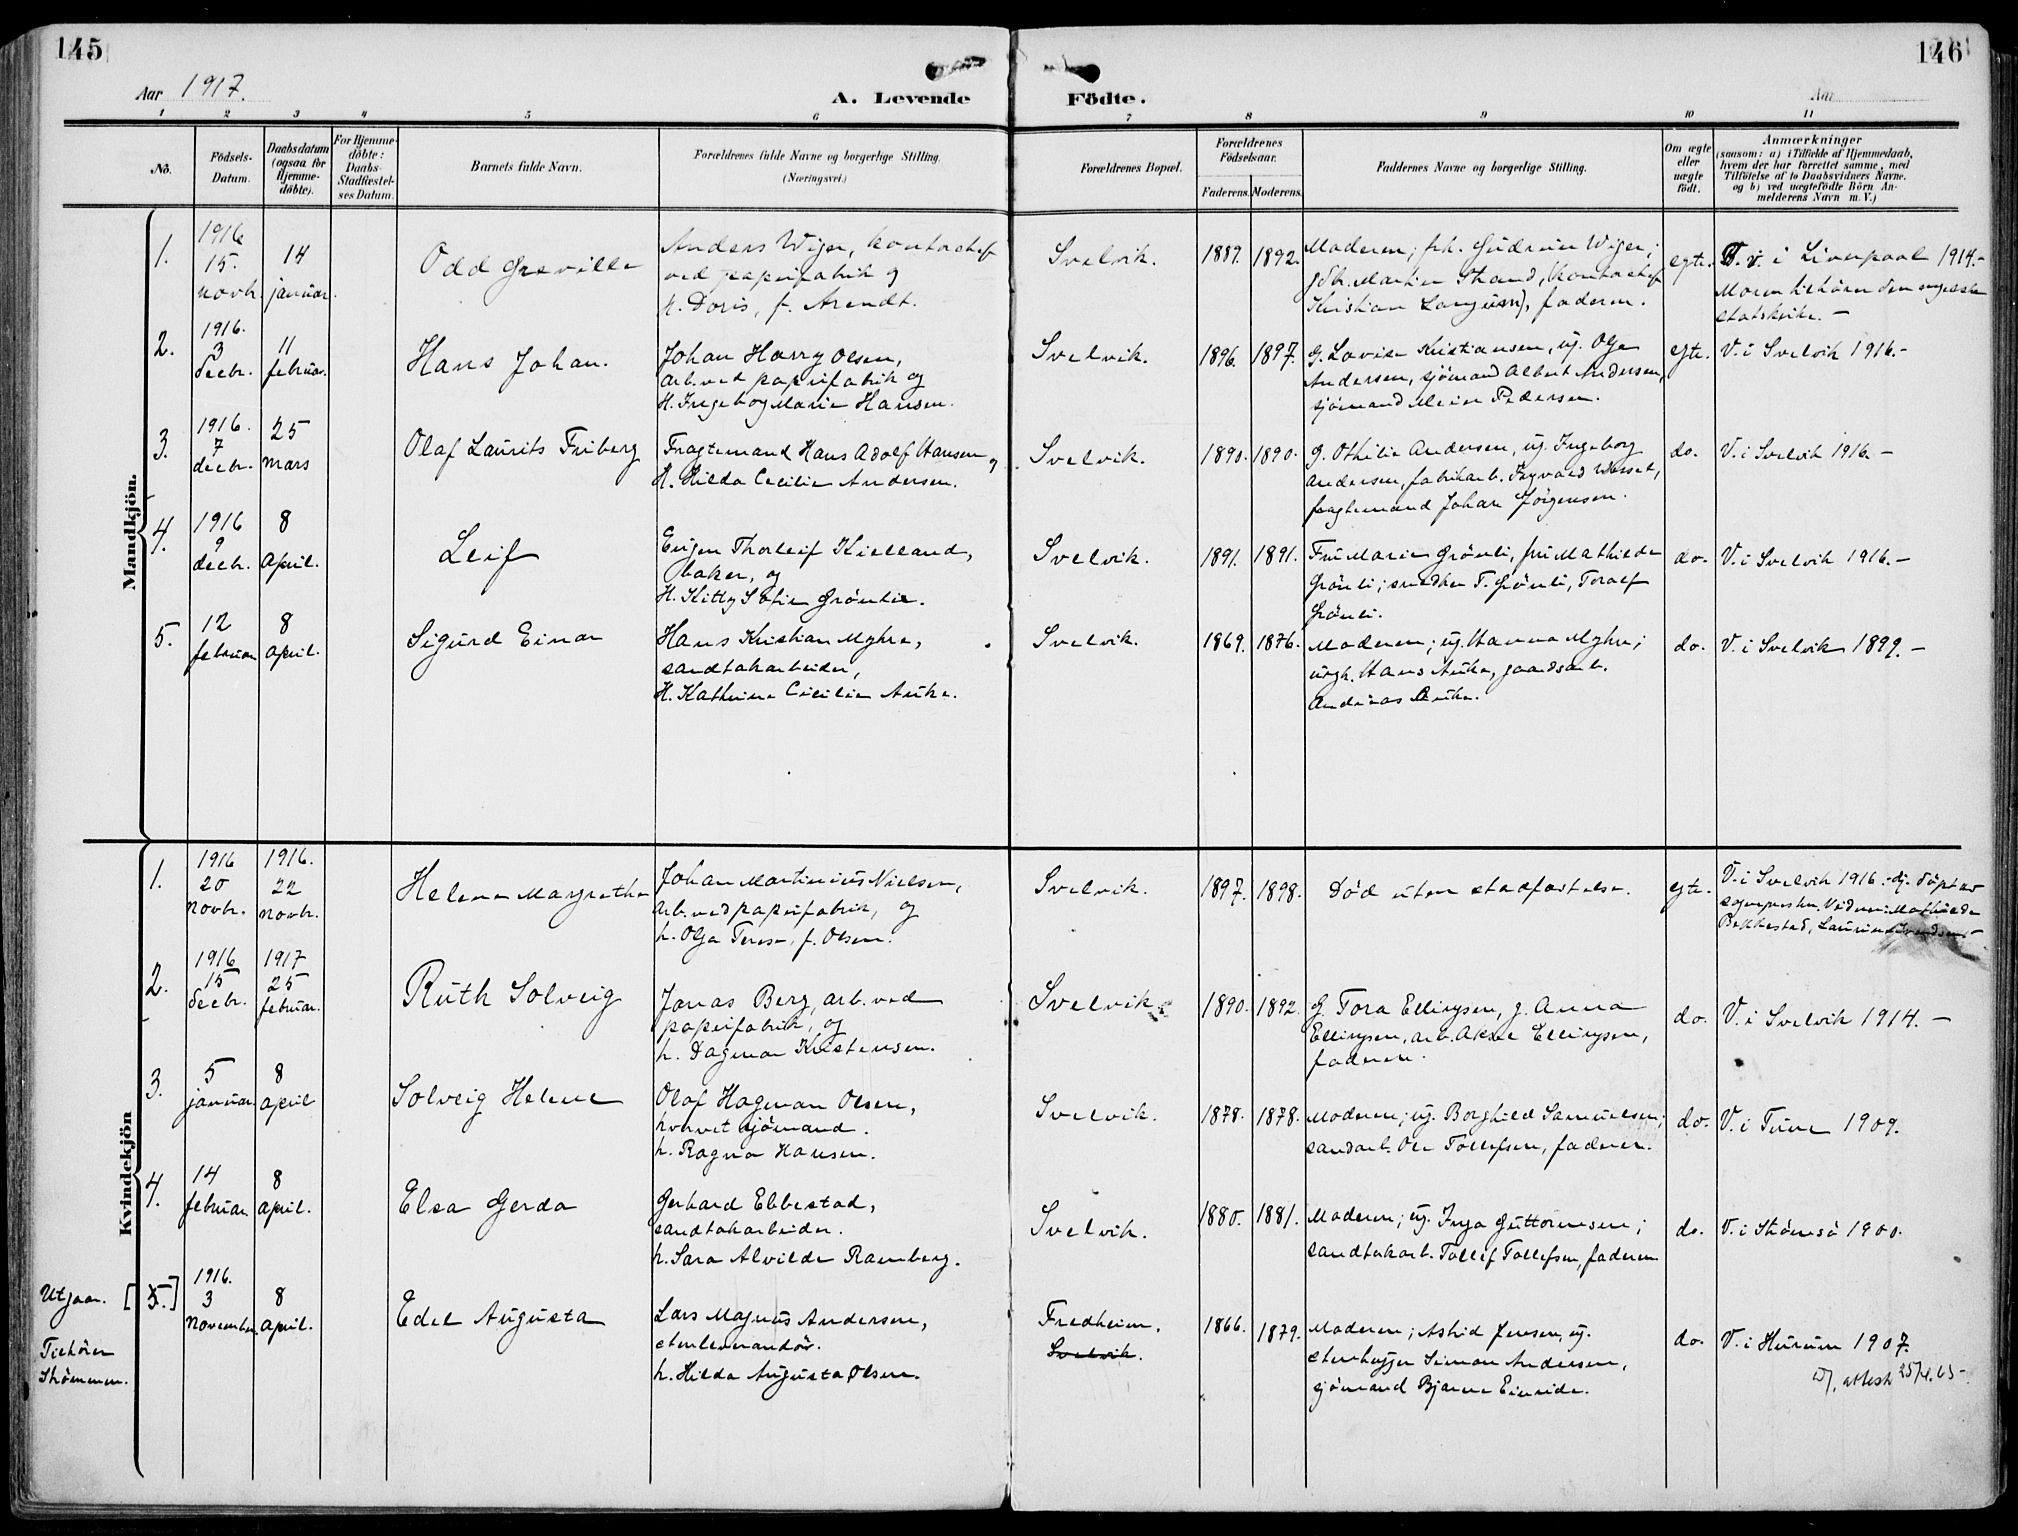 145
146
Aar 1917.
A. Levende
Födte.
Aar
1 2 3 4 5 6 7 8 9 10 11
No.
Födsels-
Datum.
Daabsdatum
(ogsaa for
Hjemme-
döbte).
For Hjemme-
döbte:
Daabs-
Stadfæstel-
ses Datum.
Barnets fulde Navn.
Forældrenes fulde Navne og borgerlige Stilling.
(Næringsvei.)
Forældrenes Bopæl.
Forældrenes
Födselsaar.
Faderens. Moderens.
Faddernes Navne og borgerlige Stilling.
Om ægte
eller
uægte
födt.
Anmærkninger
(saasom: a) i Tilfælde af Hjemmedaab,
hvem der har forrettet samme, med
Tilföielse af to Daabsvidners Navne.
og b) ved uægtefödte Börn An-
melderens Navn m. V.)
Mandkjön.
1.
1916
15.
novb.
14
januar.
Odd Greville
Anders Wiger, kontorchef
ved papirfabrik og
h. Doris, f. Arendt.
Svelvik.
1889. 1892.
Moderen; frk. Gudrun Wiger;
Martin Strand, kontorchef
Kristian faderen.
egte.
V. i Liverpool 1914.-
Moren tilhører den engelske
statskirke. -
2.
1916.
3
decbr.
11
februar.
Hans Johan.
Johan Harry Olsen,
arb. ved papirfabrik og
H. Ingeborg Marie Hansen.
Svelvik.
1896. 1897.
G. Lovise Kristiansen, ug. Olga
Andersen, sjömand Albert Andersen,
sjömand Meier Pedersen.
egte.
V. i Svelvik 1916.-
3.
1916.
7
decbr.
25
mars
Olaf Laurits Friberg
Fragtemand Hans Adolf Hansen og
H. Hilda Cecilie Andersen.
Svelvik.
1890. 1890.
G. Othilie Andersen, ug. Ingeborg
Andersen, fabrikarb. Ingvald
fragtemand Johan Jörgensen.
do.
V. i Svelvik 1916.-
4.
1916
9
decbr.
8
April.
Leif
Eugen Thorleif Kielland,
baker, og
H. Kitty Sofie Grönlie.
Svelvik.
1891. 1891.
Fru Marie Grönli, fru Mathilde
Grönli; snedker T. Grönli, Toralf
Grönli.
do.
V. i Svelvik 1916.-
5.
12
februar
8
april.
Sigurd Einar
Hans Kristian Myhre,
sandtakarbeider,
H. Kathrine Cicilie Auke.
Svelvik.
1869. 1876.
Moderen; ug. Hanna Myhre;
ungk. Hans Auke, gaardsarb.
Andreas Auke.
do.
V. i Svelvik 1899.-
Kvindekjön
1.
1916
20
novbr.
1916.
22
novbr.
Helene Margrethe
Johan Martinius Nielsen,
arb. ved papirfabrik, og
h. Olga Terese, f. Olsen.
Svelvik.
1897. 1898.
Död uten stadfæstelse.
egte.
V. i Svelvik 1916.- Hj. döpt av
sognepresten. Vidner: Mathilde
Bekkestad, Laurine
2.
1916
15
decbr.
1917
25
februar.
Ruth Solveig
Jonas Berg, arb. ved
papirfabrik, og
h. Dagmar Kristensen.
Svelvik.
1890. 1892.
G. Tora Ellingsen, g. Anna
Ellingsen, arb. Aksel Ellingsen,
faderen.
do.
V. i Svelvik 1914.-
3.
5
januar
8
april
Solveig Helene
Olaf Hagman Olsen,
sjömand.
h. Ragna Hansen.
Svelvik.
1878. 1878.
Moderen; ug. Borghild Samuelsen;
sandarb. Ole Tollefsen, faderen.
do.
V. i Tune 1909.
4.
14
februar
8
april.
Elsa Gerda
Gerhard Ebbestad,
sandtakarbeider.
h. Sara Alvilde Ramberg.
Svelvik.
1880. 1881.
Moderen; ug. Inga Guttormsen;
sandtakarb. Tollef Tollefsen, faderen
do.
V. i Strömsö 1900.
Utgaar. [5.]
Tilhörer
Strömmen.
1916.
3
november.
8
april.
Edel Augusta
Lars Magnus Andersen,
stenleverandör.
h. Hilda Augusta Olsen.
Fredheim.
Svelvik.
1866. 1879.
Moderen; Astrid Jensen, ug.
stenhugger Simon Andersen,
sjömand Bjarne Einride.
do.
V. i Hurum 1907.
attest